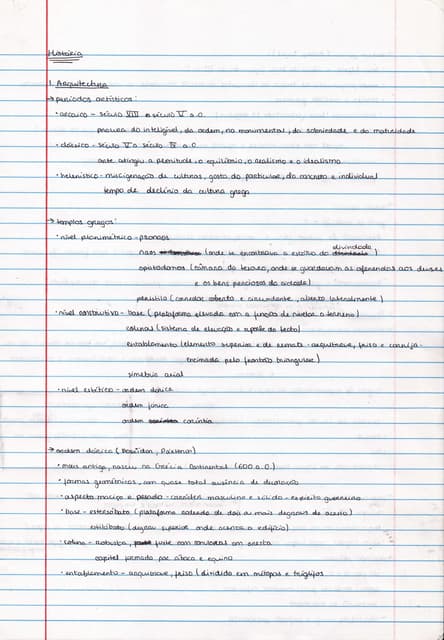 História
1. Arquitectura
→ períodos artísticos:
• arcaico - século VIII a século V a.C.
procura do inteligível, da ordem, no monumental, da solenidade e do maturidade
• clássico - século V a século IV a.C.
arte atingiu a plenitude, o equilíbrio, o realismo e o idealismo
• helenístico - miscigenação de culturas, gosto do particular, do concreto e individual
tempo de declínio da cultura grega
→ templos gregos:
• nível planimétrico - pronaos
naos (onde se encontrava a estátua da divindade
opistodomos (câmara do tesouro, onde se guardavam as oferendas aos deuses
e os bens preciosos da cidade)
peristilo (corredor coberto e circundante, aberto lateralmente)
• nível construtivo - base (plataforma elevada com a função de nivelar o terreno)
colunas (sistema de elevação e suporte do tecto)
entablamento (elemento superior e de remate - arquitrave, friso e cornija -
encimada pelo frontão triangular)
simetria axial
• nível estético - ordem dórica
ordem jónica
ordem coríntia
→ ordem dórica (Poseidon,
• mais antiga, nasceu na Grécia Continental (600 a.C.)
• formas geométricas, com quase total ausência de decoração
• aspecto maciço e pesado - carácter masculino e sólido - espírito guerreiro
• base - estereóbato (plataforma composta de dois ou mais degraus de acesso)
estilóbato (degrau superior onde assenta o edifício)
• coluna - robusta, fuste com caneluras em aresta
capitel formado por ábaco e equino
• entablamento - arquitrave, friso (dividido em métopas e tríglifos